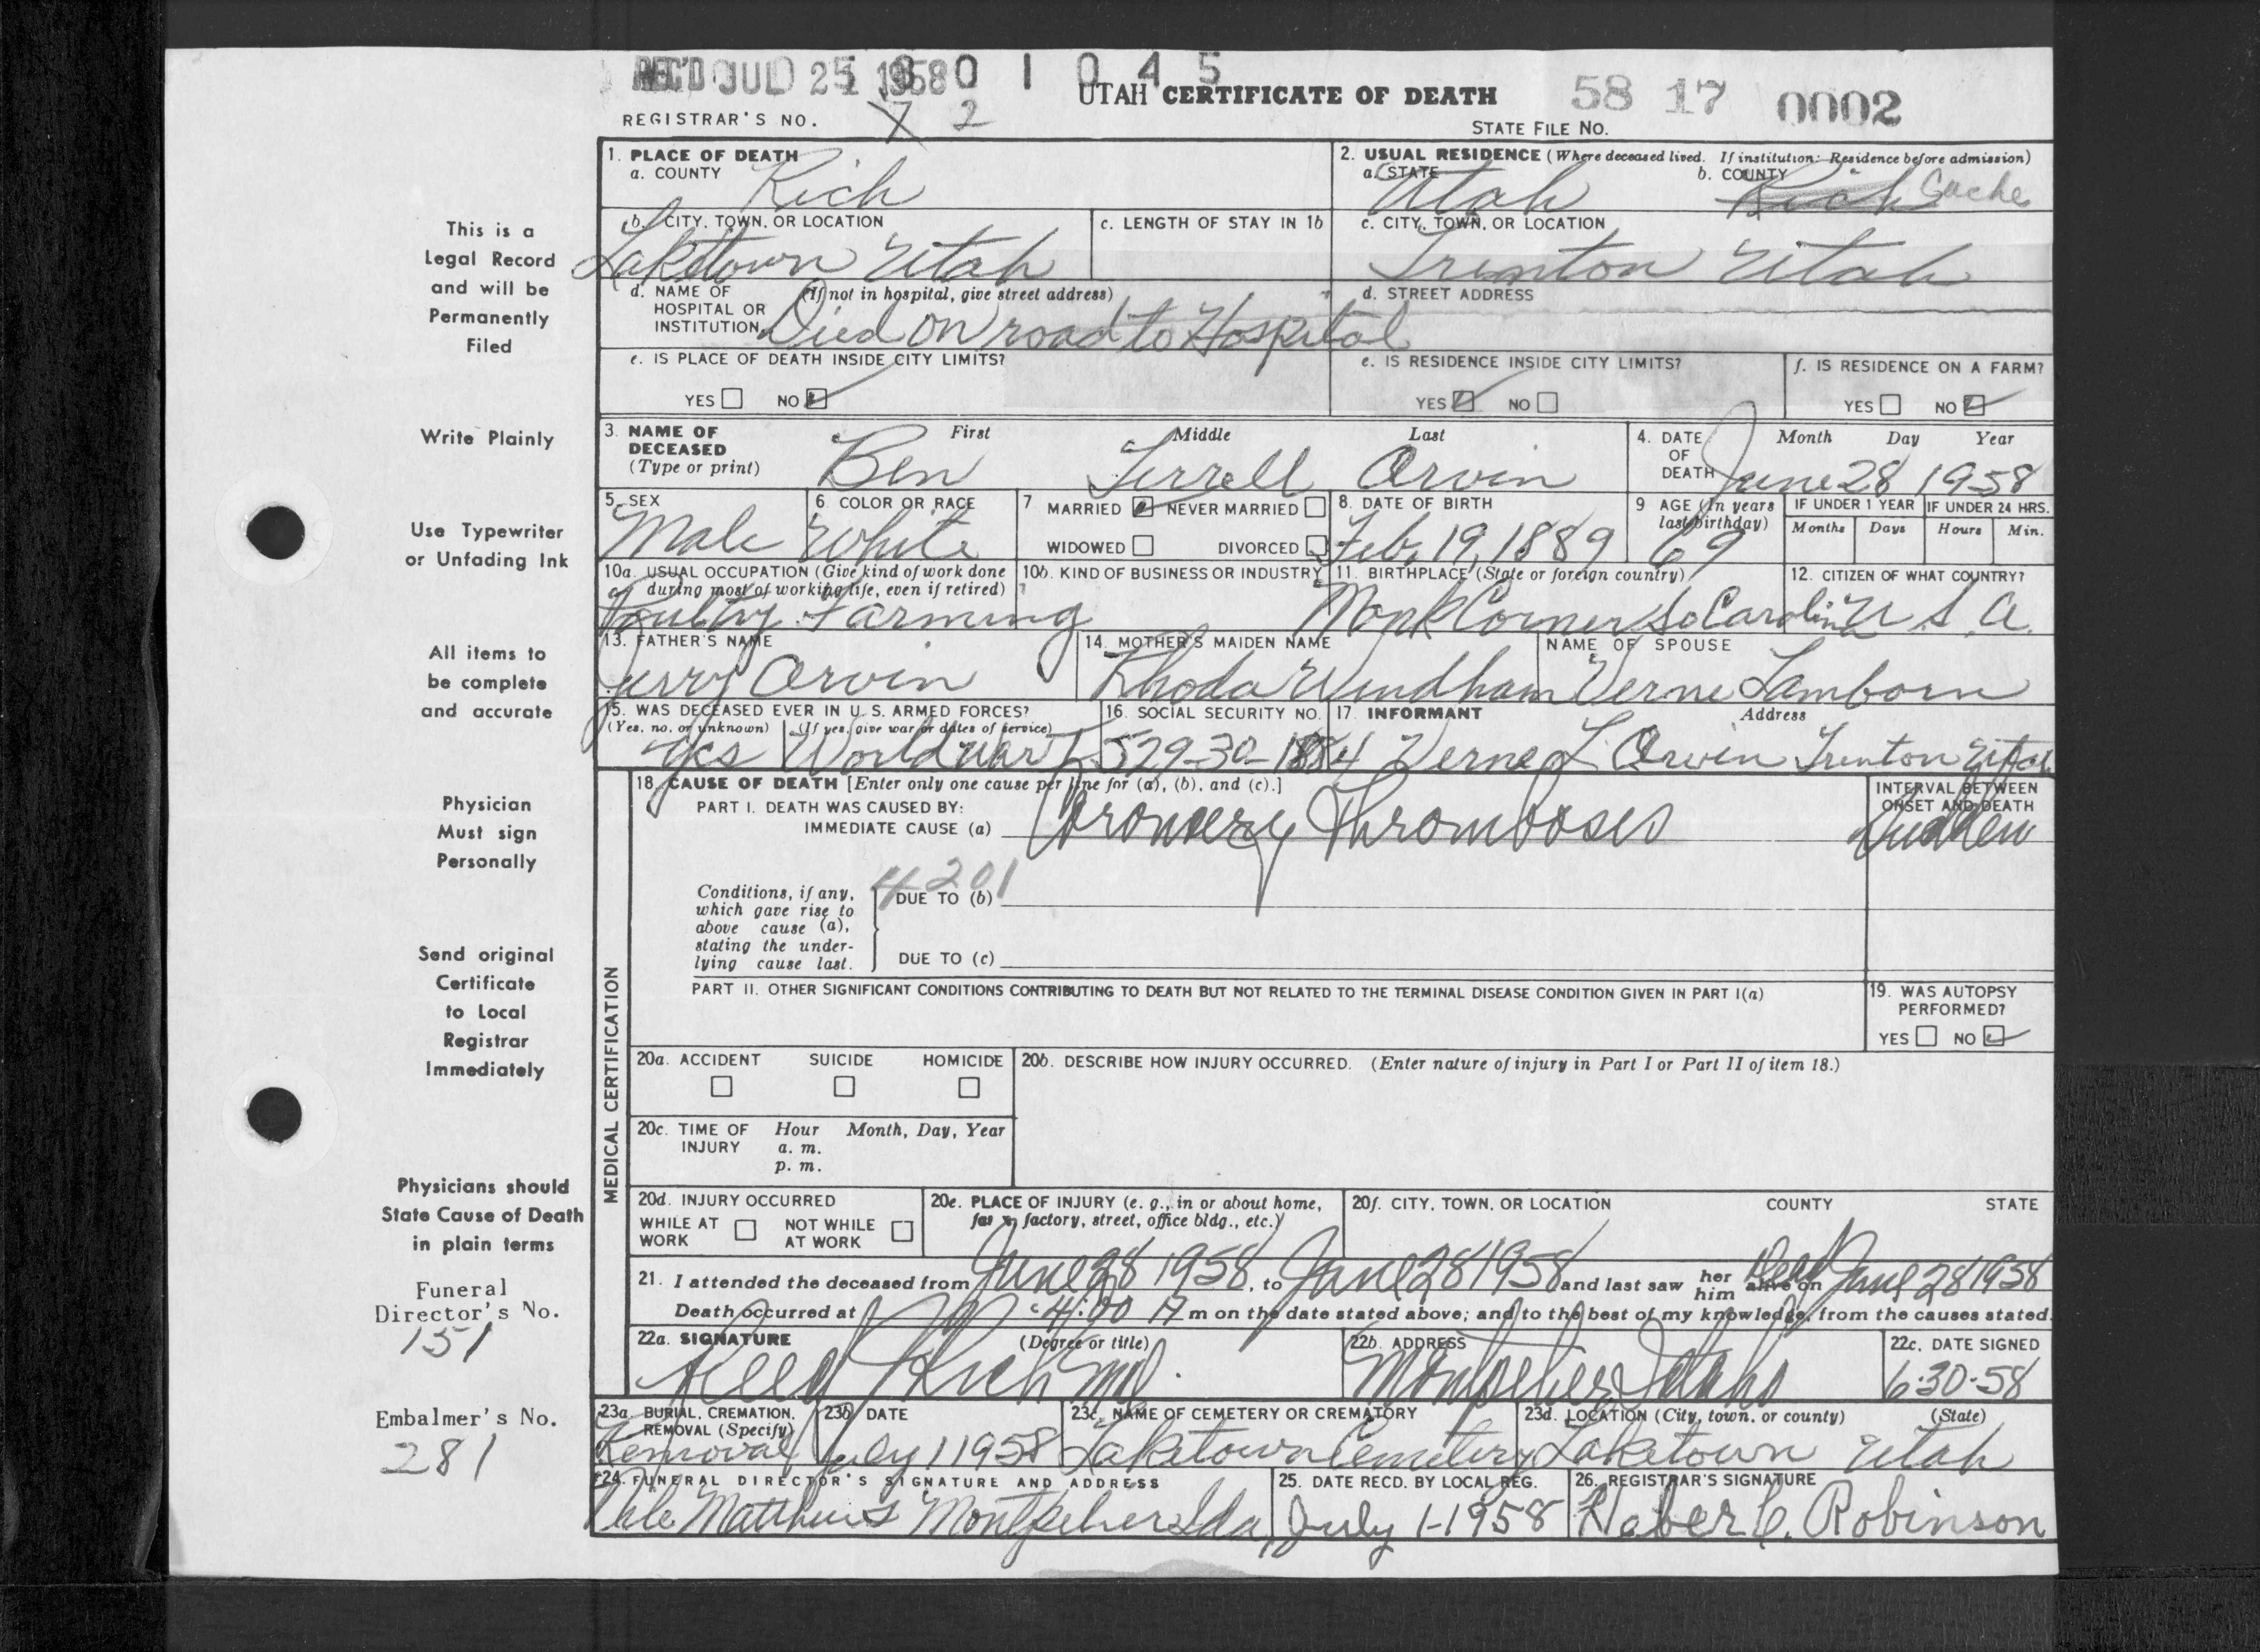 REC'D JUL 25 1958 0 1 0 4 5
UTAH CERTIFICATE OF DEATH 58 17 0002
REGISTRAR'S NO. 7 2
STATE FILE NO.
1. PLACE OF DEATH
a. COUNTY Rich
2. USUAL RESIDENCE (Where deceased lived. If institution: Residence before admission)
a. STATE Utah b. COUNTY Rich Cache
b. CITY, TOWN, OR LOCATION
Laketown Utah
c. LENGTH OF STAY IN 1b
c. CITY, TOWN, OR LOCATION
Trenton Utah
d. NAME OF HOSPITAL OR INSTITUTION (If not in hospital, give street address)
Died on road to Hospital
d. STREET ADDRESS
e. IS PLACE OF DEATH INSIDE CITY LIMITS?
YES NO
e. IS RESIDENCE INSIDE CITY LIMITS?
YES NO
f. IS RESIDENCE ON A FARM?
YES NO
3. NAME OF DECEASED (Type or print)
First Middle Last
Ben Terrell Orvin
4. DATE OF DEATH Month Day Year
June 28 1958
5. SEX
Male
6. COLOR OR RACE
White
7 MARRIED NEVER MARRIED
WIDOWED DIVORCED
8. DATE OF BIRTH
Feb, 19, 1889
9 AGE (In years last birthday)
69
IF UNDER 1 YEAR IF UNDER 24 HRS.
Months Days Hours Min.
10a. USUAL OCCUPATION (Give kind of work done during most of working life, even if retired)
Poultry Farming
10b. KIND OF BUSINESS OR INDUSTRY
11. BIRTHPLACE (State or foreign country)
Monk Corner So Carolina
12. CITIZEN OF WHAT COUNTRY?
U. S. A.
13. FATHER'S NAME
Jerry Orvin
14. MOTHER'S MAIDEN NAME
Rhoda Windham
NAME OF SPOUSE
Verne Lamborn
15. WAS DECEASED EVER IN U. S. ARMED FORCES?
(Yes, no, or unknown) (If yes, give war or dates of service)
Yes World War I
16. SOCIAL SECURITY NO.
529-30-1884
17. INFORMANT Address
Verne L Orvin Trenton Utah
18. CAUSE OF DEATH [Enter only one cause per line for (a), (b), and (c).]
PART I. DEATH WAS CAUSED BY:
IMMEDIATE CAUSE (a) Coronery Thromboses
INTERVAL BETWEEN ONSET AND DEATH
Sudden
4201
Conditions, if any, which gave rise to above cause (a), stating the underlying cause last.
DUE TO (b)
DUE TO (c)
PART II. OTHER SIGNIFICANT CONDITIONS CONTRIBUTING TO DEATH BUT NOT RELATED TO THE TERMINAL DISEASE CONDITION GIVEN IN PART I(a)
19. WAS AUTOPSY PERFORMED?
YES NO
MEDICAL CERTIFICATION
20a. ACCIDENT SUICIDE HOMICIDE
20b. DESCRIBE HOW INJURY OCCURRED. (Enter nature of injury in Part I or Part II of item 18.)
20c. TIME OF INJURY Hour Month, Day, Year
a. m.
p. m.
20d. INJURY OCCURRED
WHILE AT WORK NOT WHILE AT WORK
20e. PLACE OF INJURY (e. g., in or about home, farm, factory, street, office bldg., etc.)
20f. CITY, TOWN, OR LOCATION COUNTY STATE
21. I attended the deceased from June 28 1958, to June 28 1958 and last saw her him alive on Dead June 28 1958
Death occurred at 4:00 A m on the date stated above; and to the best of my knowledge, from the causes stated.
22a. SIGNATURE (Degree or title)
Reed Rich MD.
22b. ADDRESS
Montpelier, Idaho
22c. DATE SIGNED
6-30-58
23a. BURIAL, CREMATION, REMOVAL (Specify)
Removal
23b DATE
July 1 1958
23c. NAME OF CEMETERY OR CREMATORY
Laketown Cemetery
23d. LOCATION (City, town, or county) (State)
Laketown Utah
24. FUNERAL DIRECTOR'S SIGNATURE AND ADDRESS
Dale Matthews Montpelier Ida,
25. DATE RECD. BY LOCAL REG.
July 1-1958
26. REGISTRAR'S SIGNATURE
Heber C. Robinson
This is a
Legal Record
and will be
Permanently
Filed
Write Plainly
Use Typewriter
or Unfading Ink
All items to
be complete
and accurate
Physician
Must sign
Personally
Send original
Certificate
to Local
Registrar
Immediately
Physicians should
State Cause of Death
in plain terms
Funeral
Director's No.
151
Embalmer's No.
281